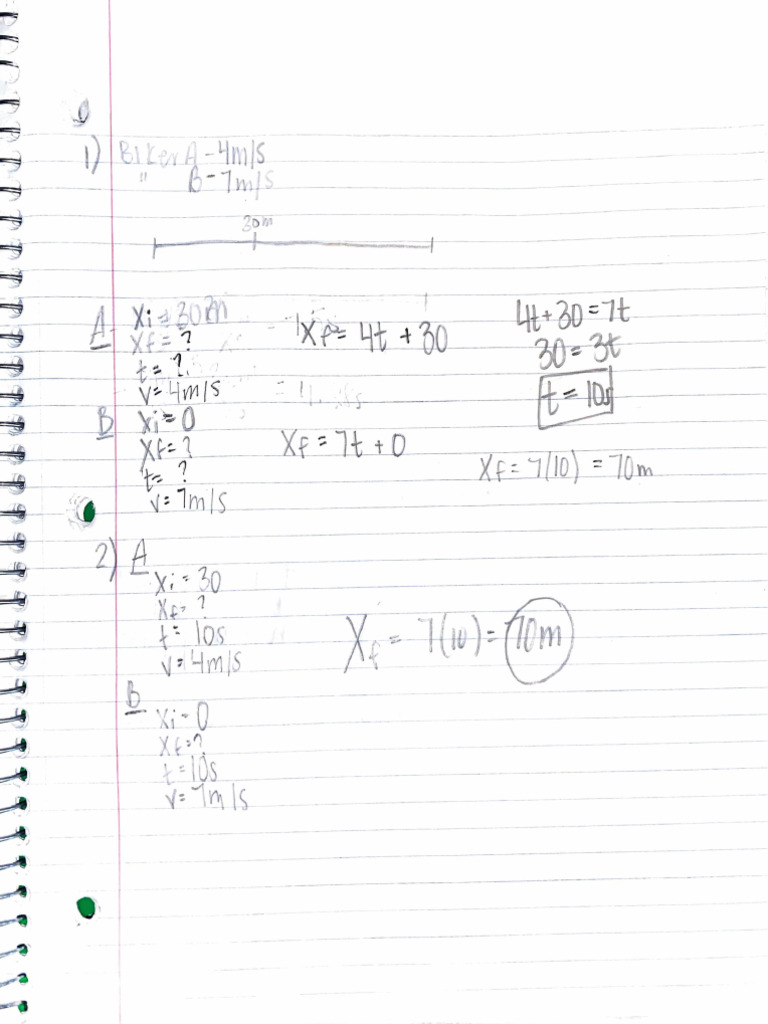 1) Biker A - 4m/s
" B - 7m/s
30m
A Xi = 30m
Xf = ?
t = ?
v = 4m/s
Xf = 4t + 30
4t + 30 = 7t
30 = 3t
t = 10s
B Xi = 0
Xf = ?
t = ?
v = 7m/s
Xf = 7t + 0
Xf = 7(10) = 70m
2) A
Xi = 30
Xf = ?
t = 10s
v = 4m/s
Xf = 7(10) = 70m
B
Xi = 0
Xf = ?
t = 10s
v = 7m/s